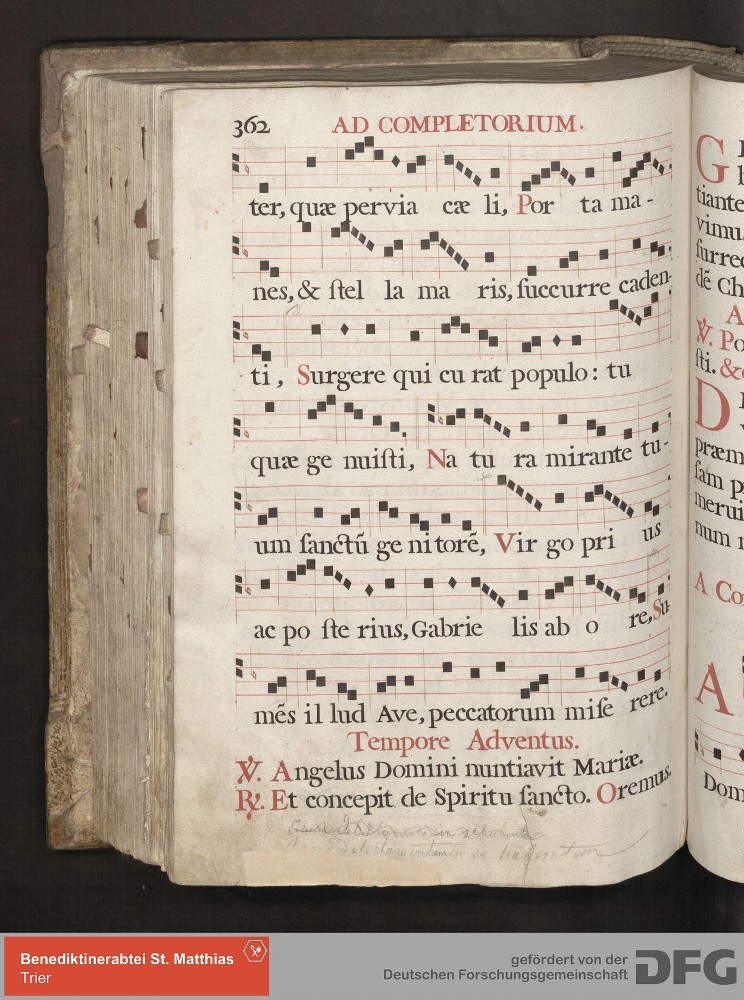 362 AD COMPLETORIUM.
ter, quæ pervia cæ li, Por ta ma-
nes, & ſtel la ma ris, ſuccurre caden-
ti, Surgere qui cu rat populo: tu
quæ ge nuiſti, Na tu ra mirante tu-
um ſanctũ ge nitorẽ, Vir go pri us
ac po ſte rius, Gabrie lis ab o re, Su-
mẽs il lud Ave, peccatorum miſe rere.
Tempore Adventus.
℣. Angelus Domini nuntiavit Mariæ.
℟. Et concepit de Spiritu ſancto. Oremus.
G
tiante
vimu
ſurrec
dẽ Ch
A
℣. Po
ſti. &
D
præm
ſam p
merui
num
A Co
A
Dom
Benediktinerabtei St. Matthias
Trier
gefördert von der
Deutschen Forschungsgemeinschaft
DFG